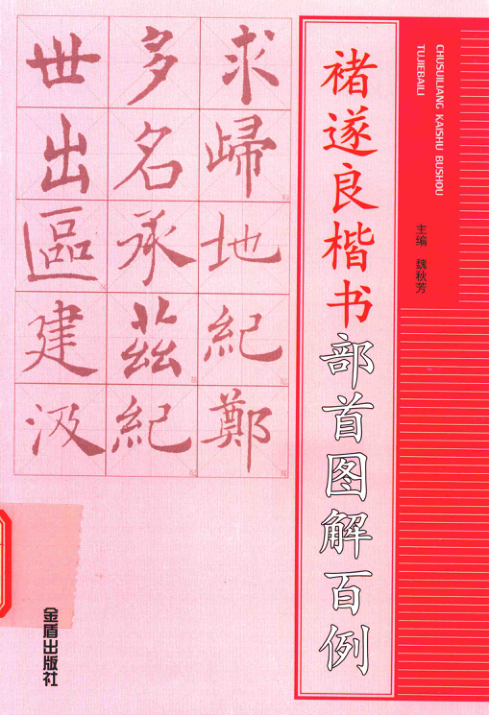 世 多 求
出 名 歸
區 承 地
建 茲 紀
汲 紀 鄭
褚遂良楷书部首图解百例
CHUSUILIANG KAISHU BUSHOU
TUJIEBAILI
主编 魏秋芳
金盾出版社